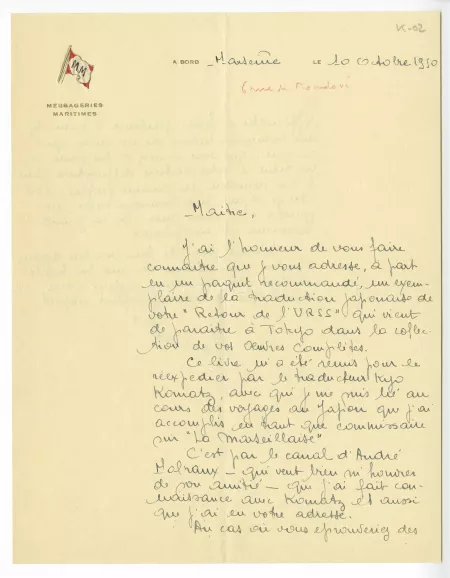 K-02
M M
MESSAGERIES
MARITIMES
A BORD Marseille LE 10 octobre 1950
Maître,
J'ai l'honneur de vous faire
connaître que je vous adresse, à part
en un paquet recommandé, un exem-
plaire de la traduction japonaise de
votre "Retour de l'URSS" qui vient
de paraître à Tokyo dans la collec-
tion de vos Oeuvres Complètes.
Ce livre m'a été remis pour le
réexpédier par le traducteur Kyo
Komatz, avec qui je me suis lié au
cours des voyages au Japon que j'ai
accomplis en tant que commissaire
sur "La Marseillaise"
C'est par le canal d'André
Malraux - qui veut bien m'honorer
de son amitié - que j'ai fait con-
naissance avec Komatz et aussi
que j'ai eu votre adresse.
Au cas où vous éprouveriez des